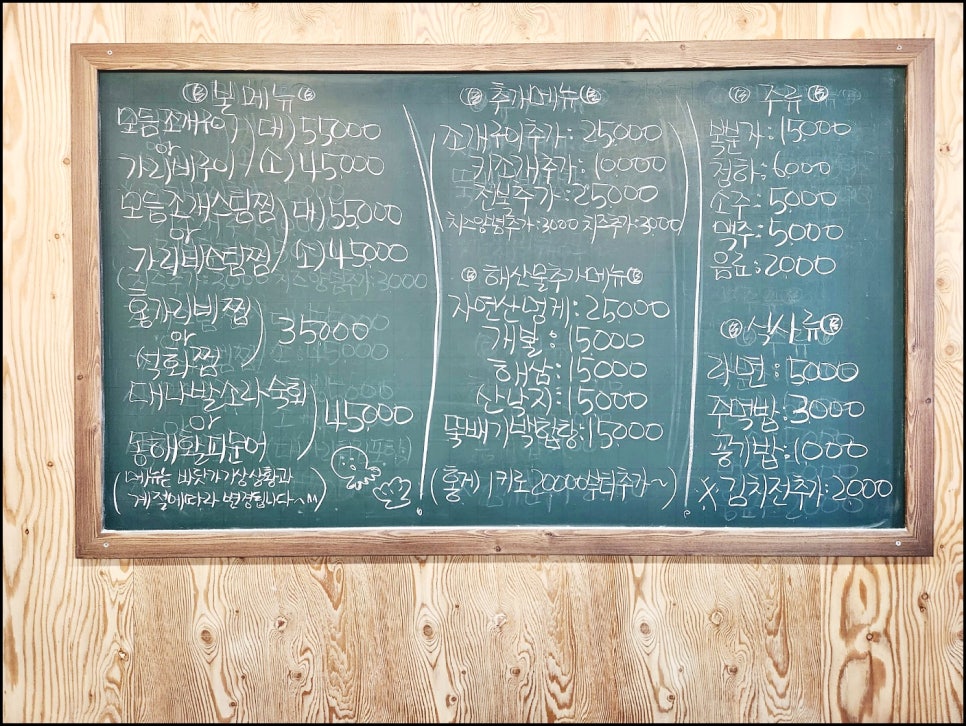 불 메뉴
모듬조개구이
or
가리비구이
대) 55,000
소) 45,000
모듬조개스팀찜
or
가리비스팀찜
대) 55,000
소) 45,000
홍가리비찜
or
석화찜
35,000
대나발소라숙회
or
동해활피문어
45,000
(메뉴는 바닷가기상상황과
계절에따라 변경됩니다~^^)
추가메뉴
조개구이추가: 25,000
키조개추가: 10,000
전복추가: 25,000
치즈양념추가: 3000 치즈추가: 3000
해산물추가메뉴
자연산멍게: 25000
개불: 15000
해삼: 15000
산낙지: 15000
뚝배기백합탕: 15000
(홍게 1키로 20000부터추가~)
주류
복분자: 15000
청하: 6000
소주: 5000
맥주: 5,000
음료: 2000
식사류
라면: 5000
주먹밥: 3000
공기밥: 1000
※김치전추가: 2000